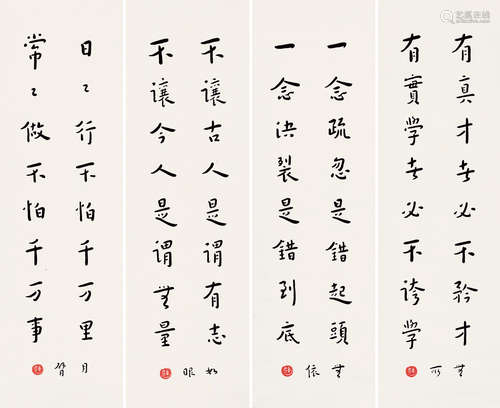 有真才者必不矜才
有實學者必不誇學
無所
一念疏忽是錯起頭
一念決裂是錯到底
無依
不讓古人是謂有志
不讓今人是謂無量
如眼
日〻行不怕千万里
常〻做不怕千万事
月臂
艺狐在线